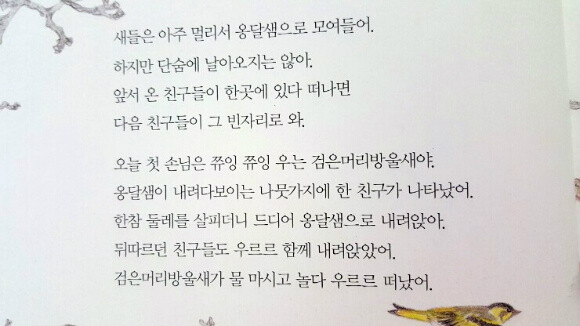 새들은 아주 멀리서 옹달샘으로 모여들어.
하지만 단숨에 날아오지는 않아.
앞서 온 친구들이 한곳에 있다 떠나면
다음 친구들이 그 빈자리로 와.
오늘 첫 손님은 쮸잉 쮸잉 우는 검은머리방울새야.
옹달샘이 내려다보이는 나뭇가지에 한 친구가 나타났어.
한참 둘레를 살피더니 드디어 옹달샘으로 내려앉아.
뒤따르던 친구들도 우르르 함께 내려앉았어.
검은머리방울새가 물 마시고 놀다 우르르 떠났어.